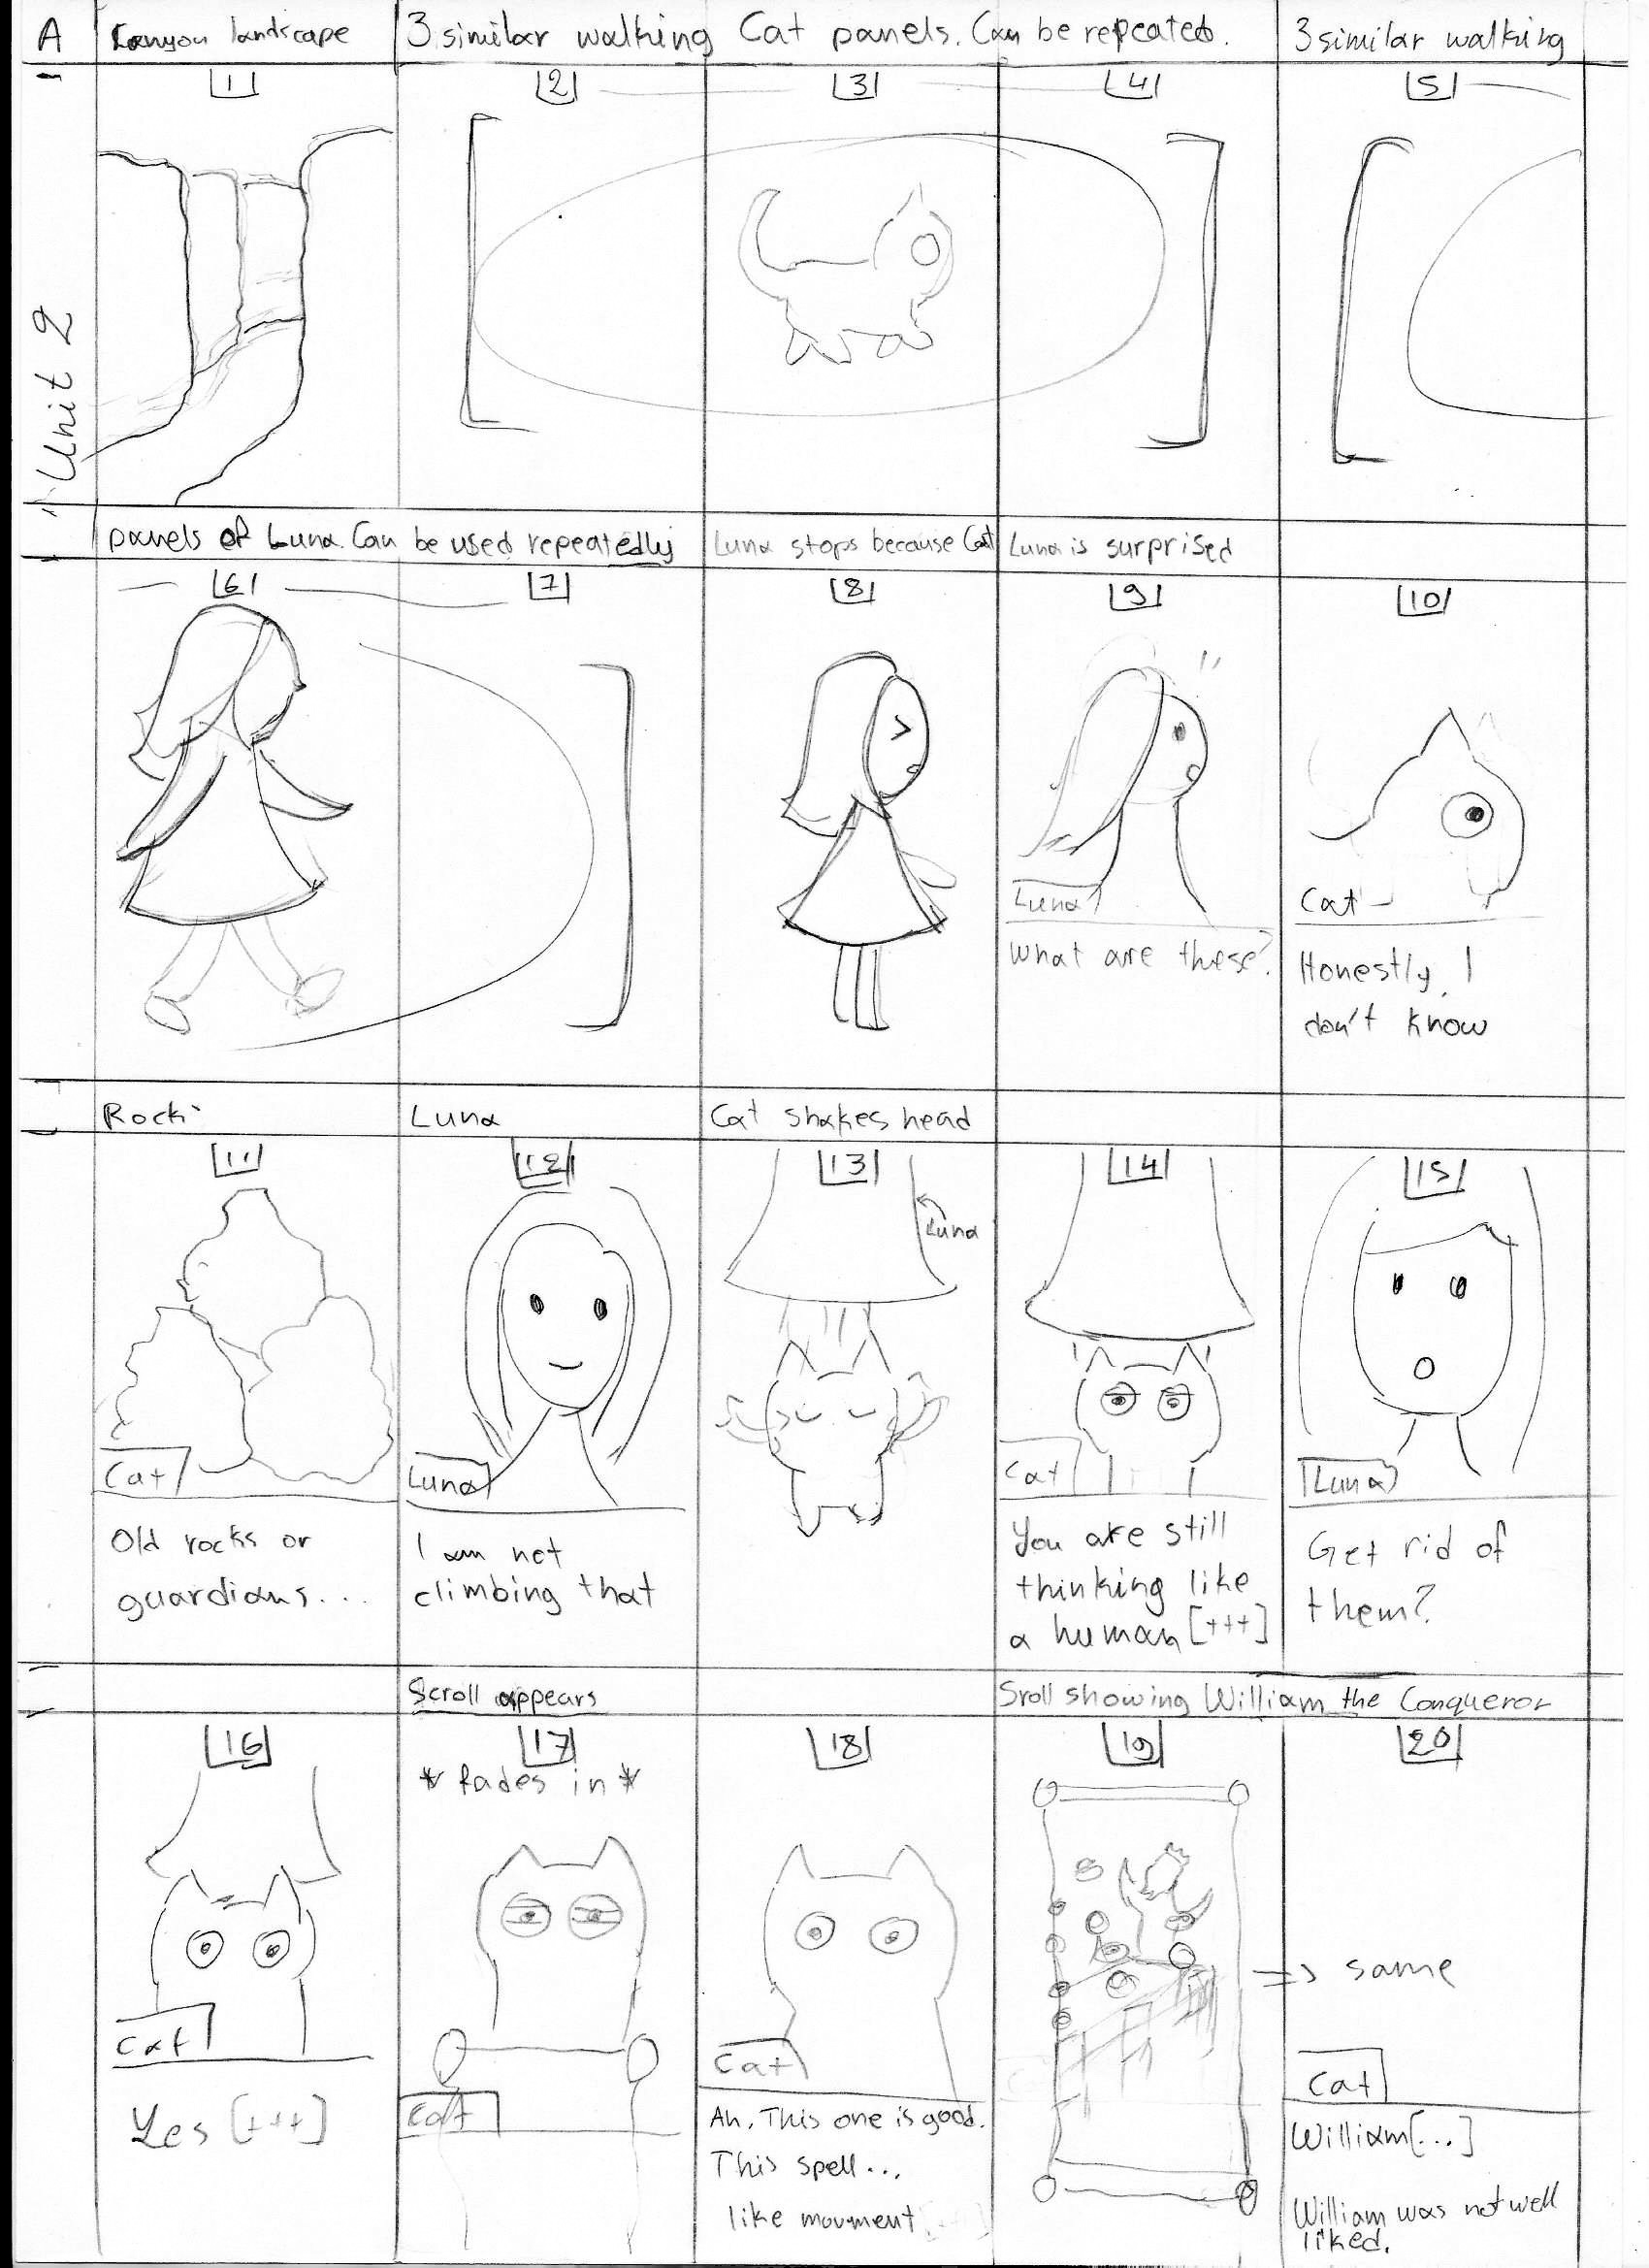 A
Canyon landscape
3 similar walking Cat panels. Can be repeated.
3 similar walking
1
2
3
4
5
Unit 2
panels of Luna. Can be used repeatedly
Luna stops because Cat
Luna is surprised
6
7
8
9
10
Luna
What are these?
Cat
Honestly, I
don't know
Rock
Luna
Cat shakes head
11
12
13
14
15
Luna
Cat
Old rocks or
guardians...
Luna
I am not
climbing that
Cat
You are still
thinking like
a human [+++]
Luna
Get rid of
them?
Scroll appears
Sroll showing William the Conqueror
16
17
18
19
20
*fades in*
=> same
Cat
Yes [+++]
Cat
Cat
Ah. This one is good.
This spell...
like movment
Cat
William[...]
William was not well
liked.